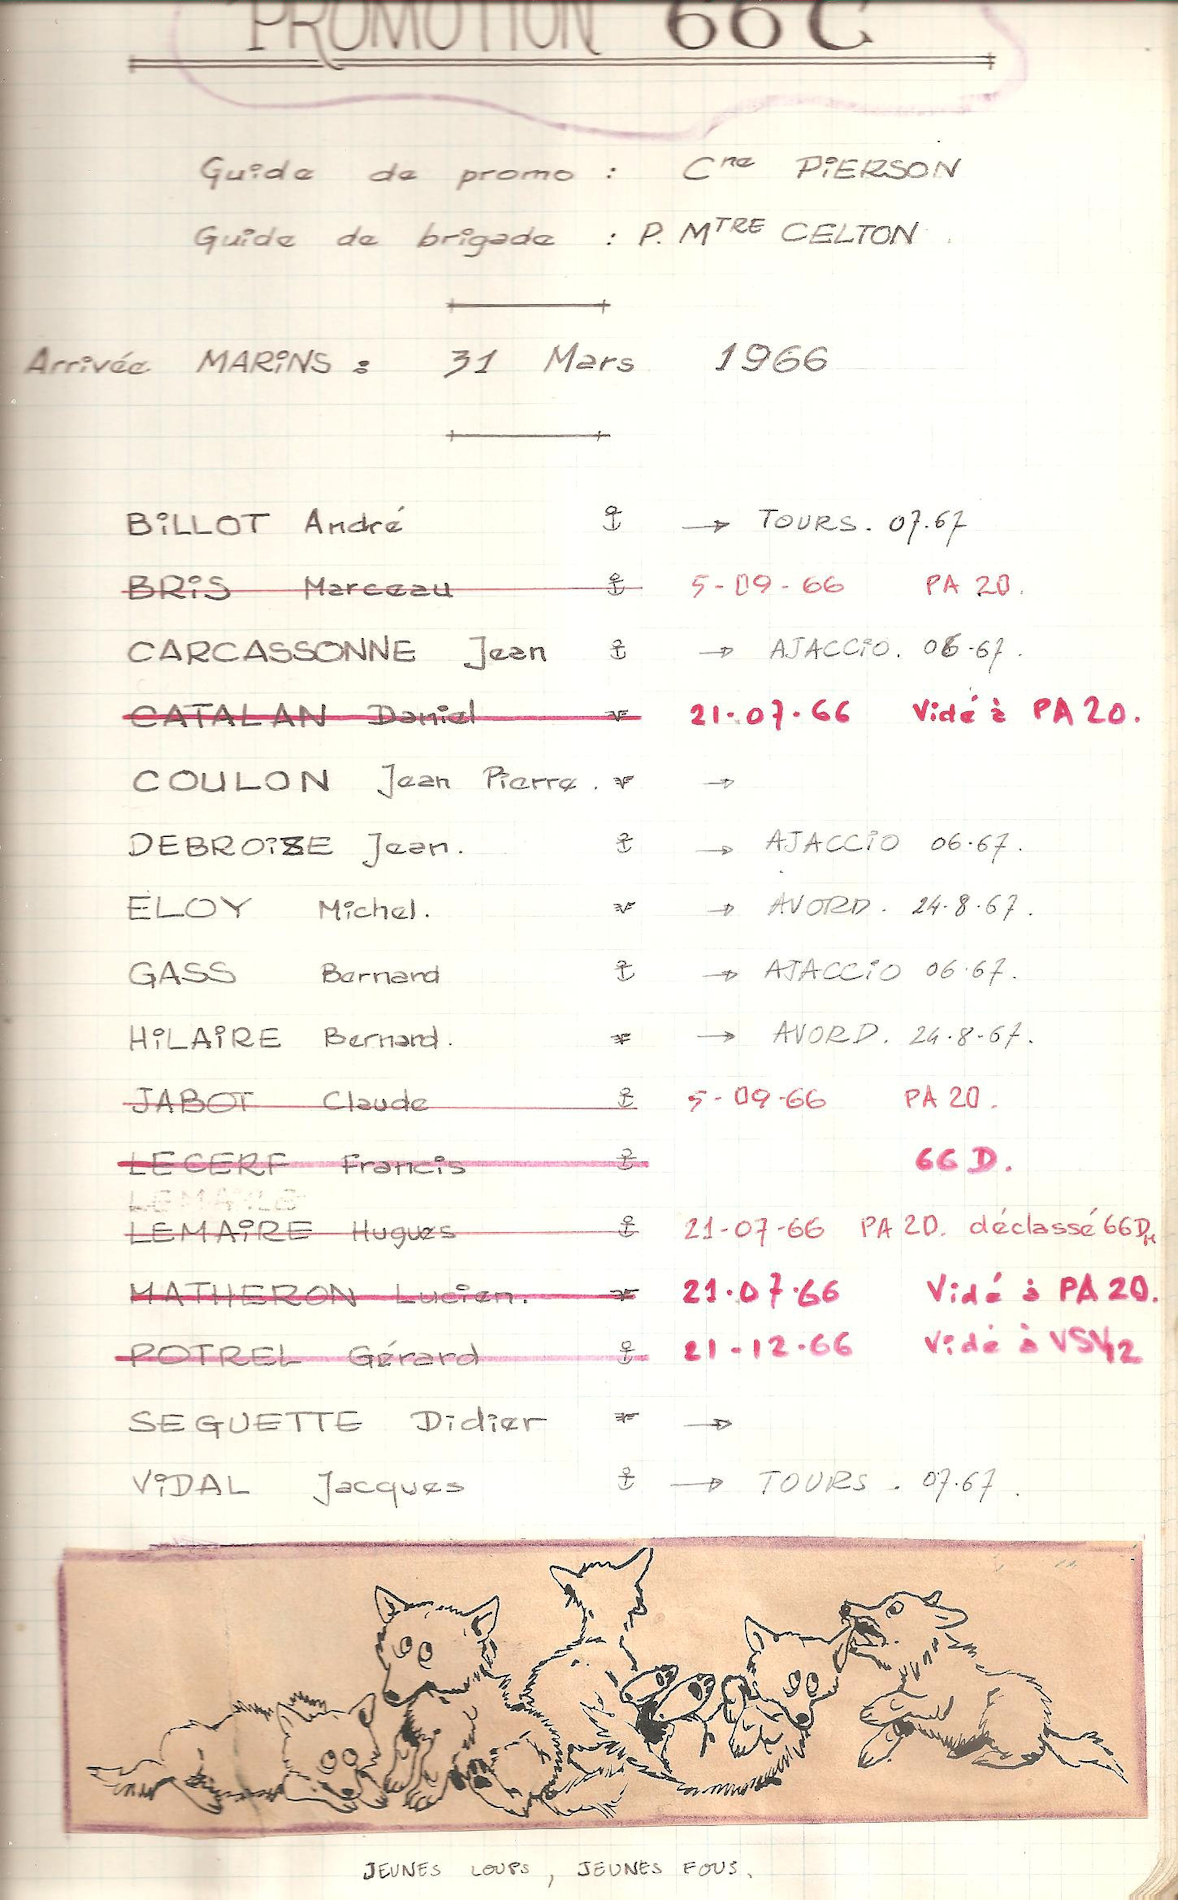 PROMOTION 66 C
Guide de promo : Cne PiERSON
Guide de brigade : P. MTRE CELTON
Arrivée MARiNS : 31 Mars 1966
BiLLOT André → TOURS. 07.67
BRiS Marceau 5-09-66 PA 20.
CARCASSONNE Jean → AJACCiO. 06-67.
CATALAN Daniel 21.07.66 Vidé à PA 20.
COULON Jean Pierre. →
DEBROiZE Jean. → AJACCiO 06.67.
ELOY Michel. → AVORD. 24.8.67.
GASS Bernard → AJACCiO 06.67.
HiLAiRE Bernard. → AVORD. 24.8-67.
JABOT Claude 5-09-66 PA 20.
LECERF Francis 66 D.
LEMAiRE Hugues 21-07-66 PA 20. déclassé 66D
MATHERON Lucien. 21.07.66 Vidé à PA 20.
POTREL Gérard 21-12-66 Vidé à VSV12
SEGUETTE Didier →
ViDAL Jacques → TOURS. 07.67.
JEUNES LOUPS, JEUNES FOUS.